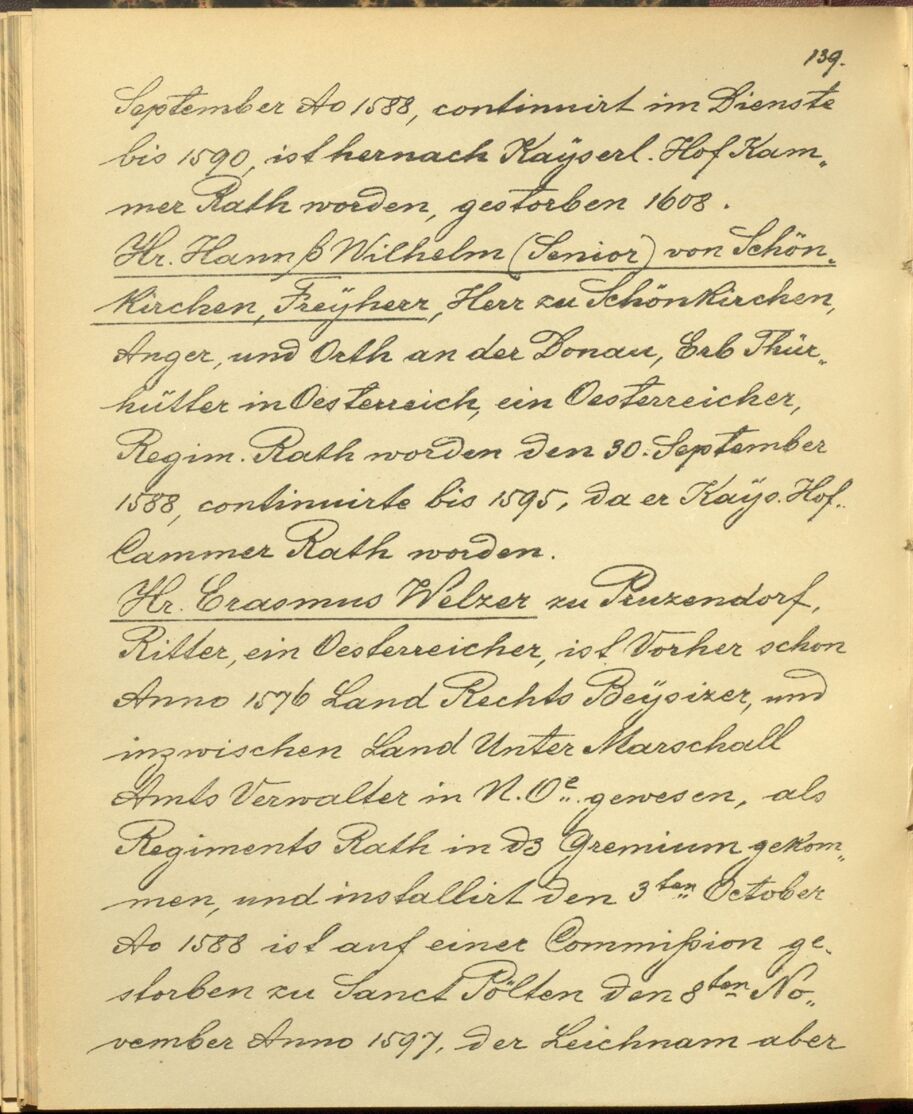 139.
September Ao 1588, continuirt im Dienste
bis 1590, ist hernach Kaÿserl. Hof Kam„
mer Rath worden, gestorben 1608.
Hr. Hannß Wilhelm (Senior) von Schön„
Kirchen, Freÿherr, Herr zu Schönkirchen,
Anger, und Orth an der Donau, Erb Thür„
hütter in Oesterreich, ein Oesterreicher,
Regim. Rath worden den 30. September
1588, continuirte bis 1595, da er Kaÿs. Hof„
Cammer Rath worden.
Hr. Erasmus Welzer zu Pruzendorf,
Ritter, ein Oesterreicher, ist Vorher schon
Anno 1576 Land Rechts Beÿsizer, und
inzwischen Land Unter Marschall
Amts Verwalter in N. Oe. gewesen, als
Regiments Rath in d3 Gremium gekom„
men, und installirt den 3ten October
Ao 1588 ist auf einer Commißion ge„
storben zu Sanct Pölten den 8ten No„
vember Anno 1597, der Leichnam aber